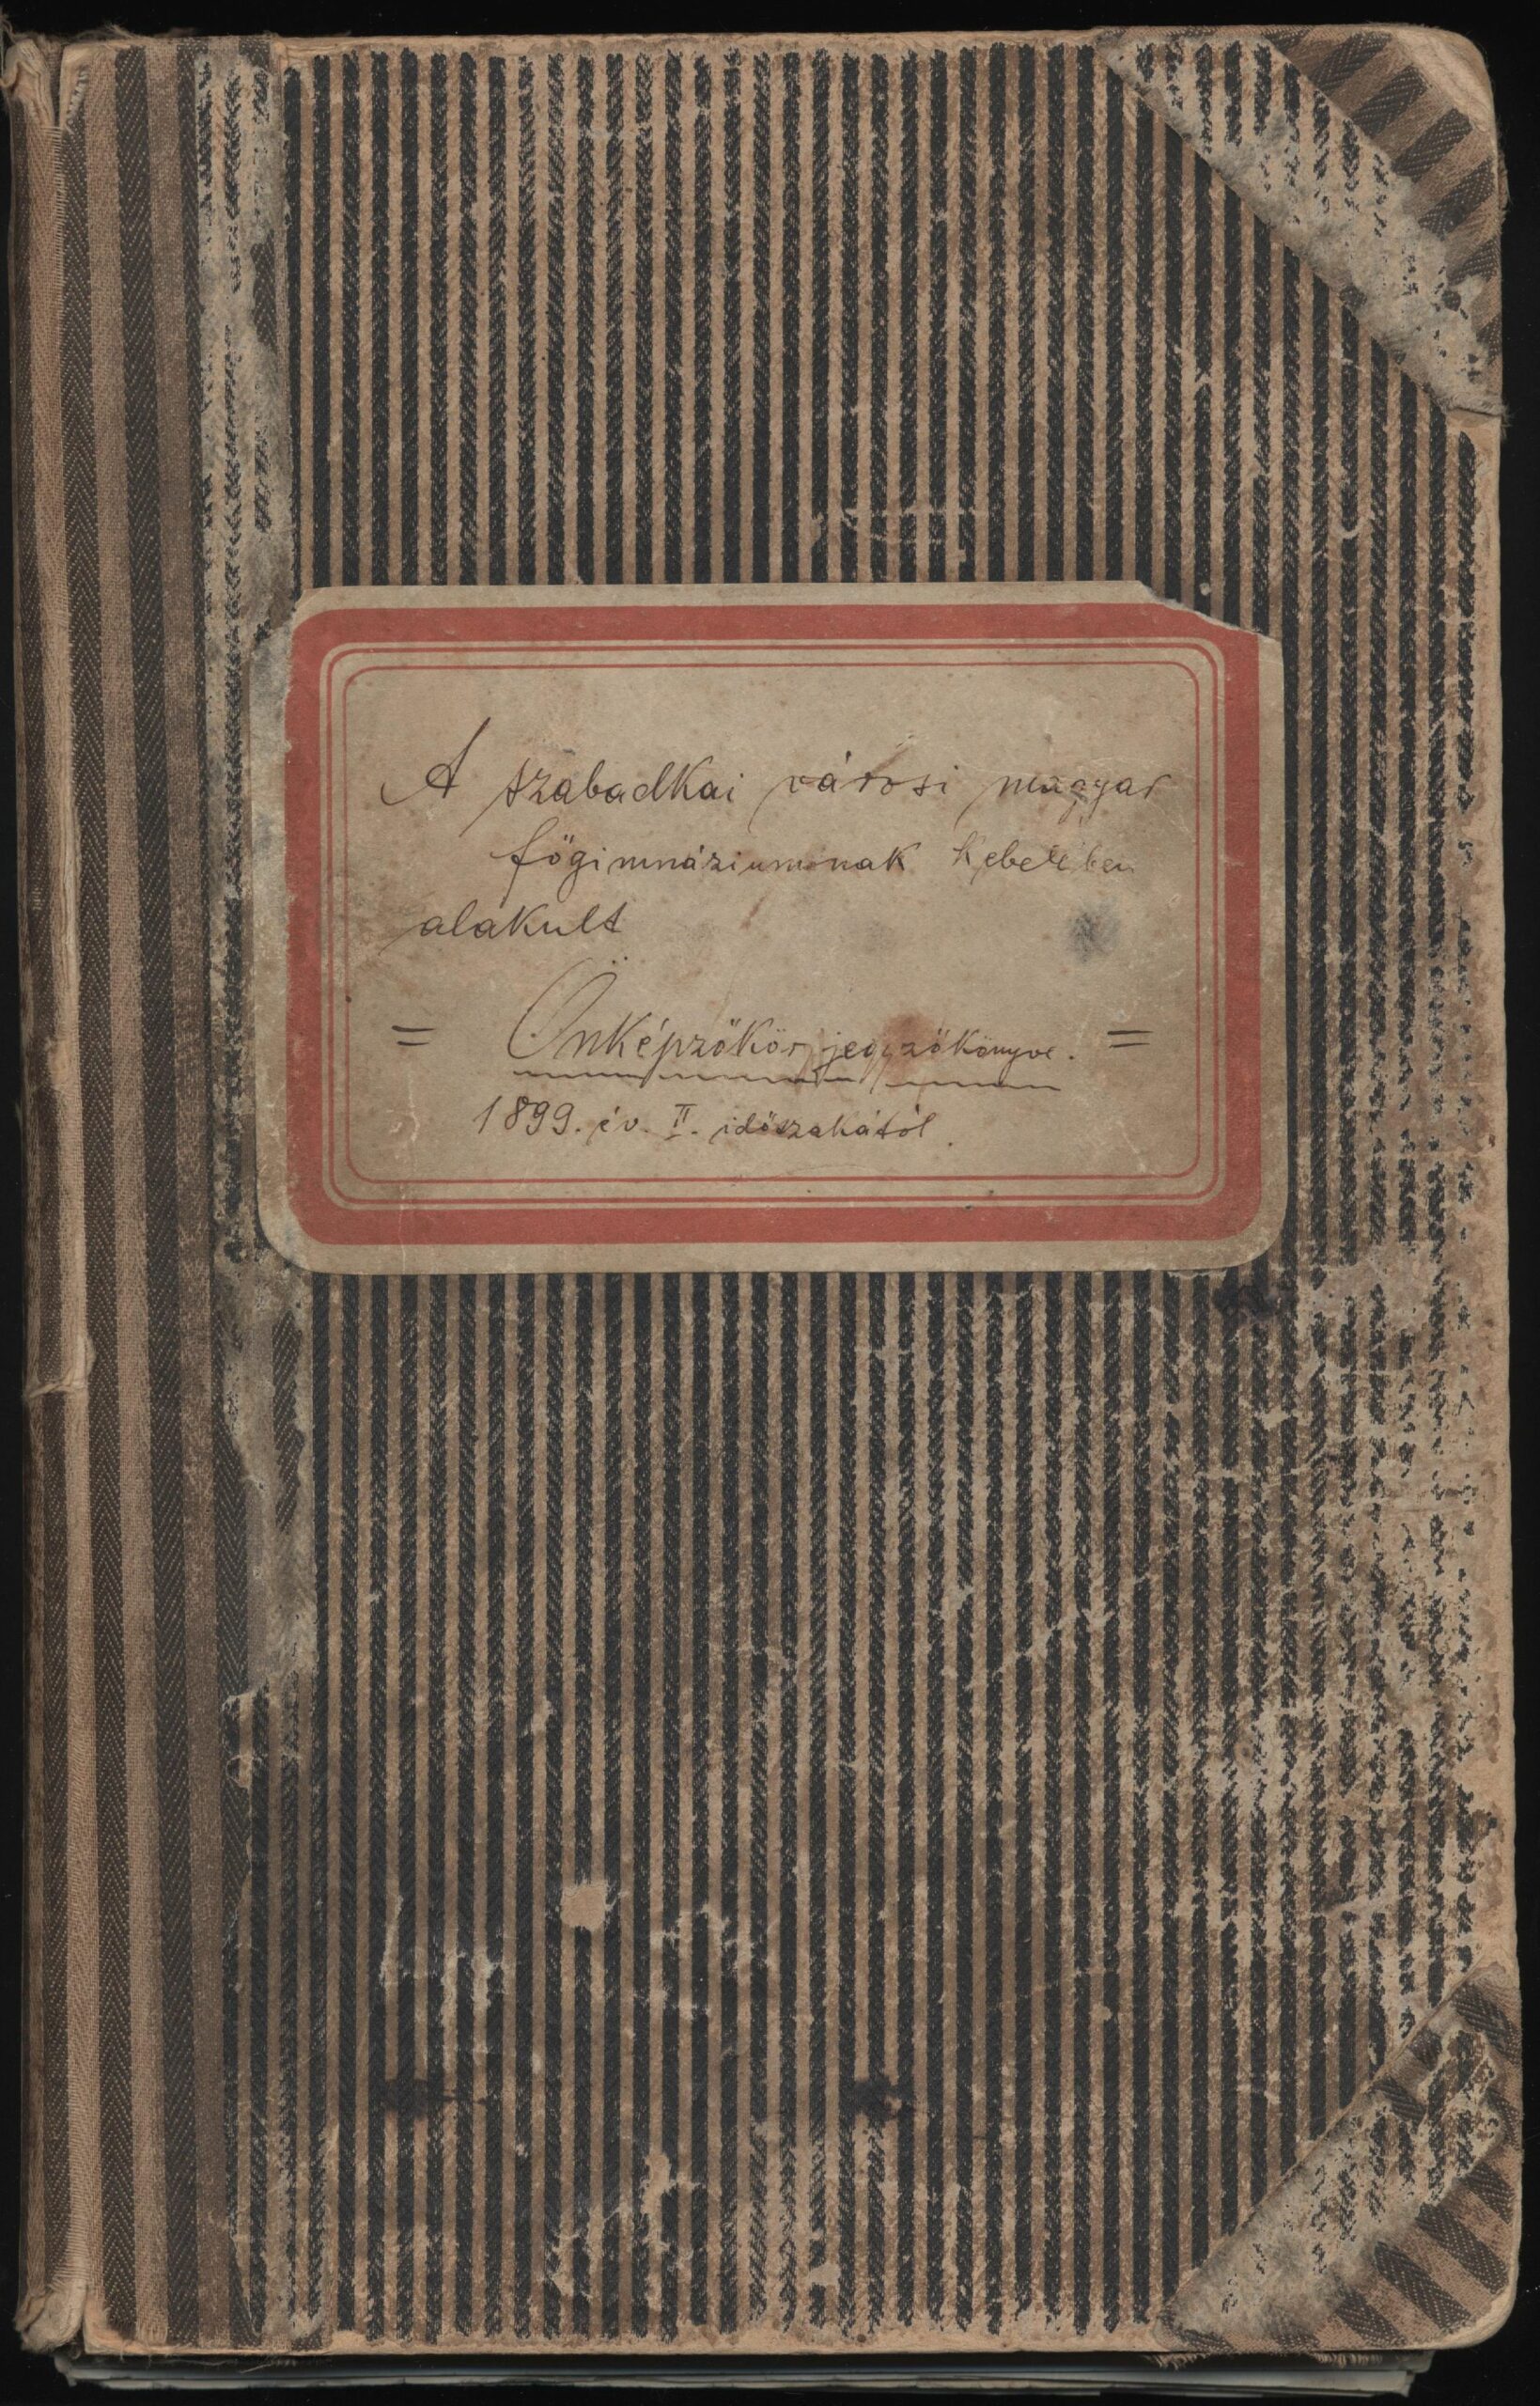 A szabadkai városi magyar
főgimnáziumnak kebelében
alakult
= Önképzőkör jegyzőkönyve. =
1899. év. II. időszakától.